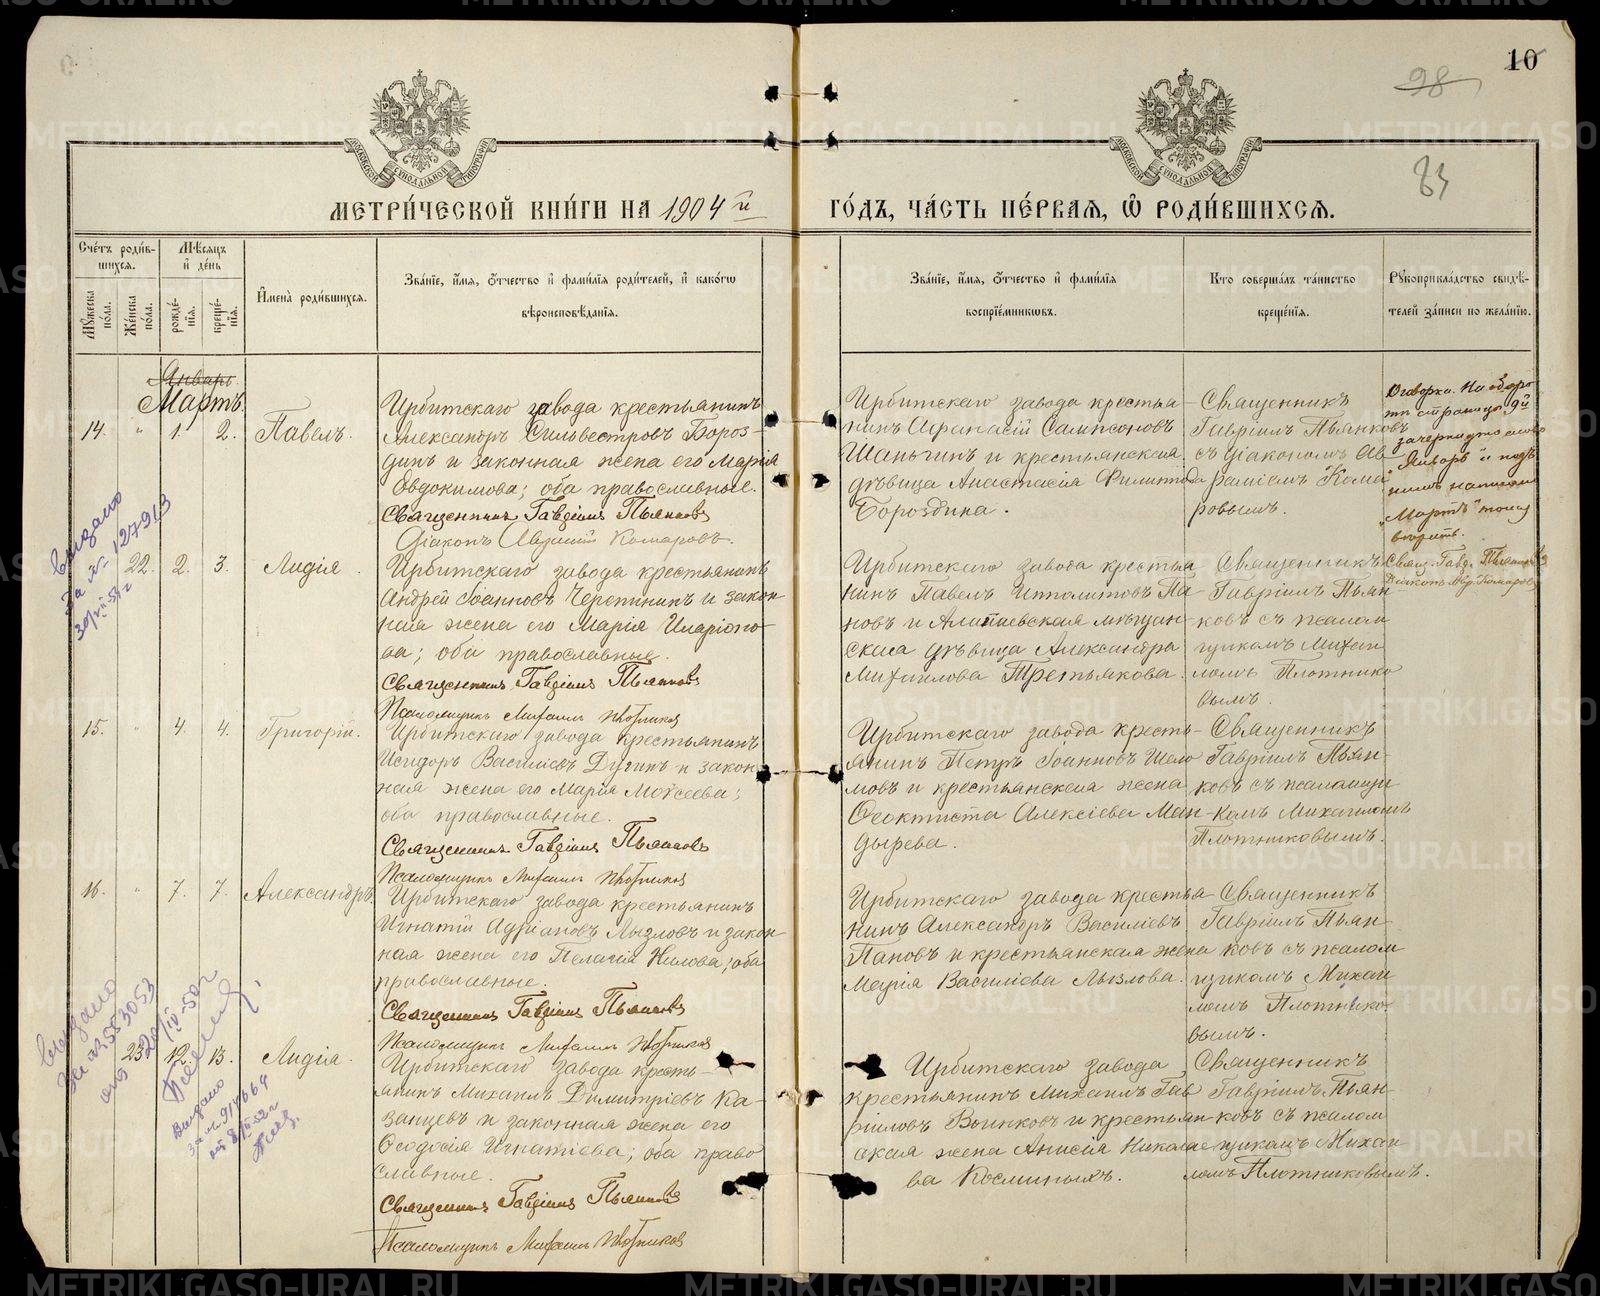 10
98
85
МЕТРИ́ЧЕСКОЙ КНИ́ГИ НА 1904й ГО́ДЪ, ЧА́СТЬ ПЕ́РВАЯ, Ѡ РОДИ́ВШИХСѦ.
Сче́тъ роди́в-
шихсѧ.
Мꙋ́жеска по́ла.
Же́нска по́ла.
Мѣ́сяцъ
и҆ де́нь
рожде́-
нїѧ.
креще́-
нїѧ.
И҆мена̀ роди́вшихсѧ.
Зва́нїе, и҆́мѧ, ѻ҆́тчество и҆ фами́лїѧ роди́телей, и҆ како́гѡ
вѣроисповѣ́данїѧ.
Зва́нїе, и҆́мѧ, ѻ҆́тчество и҆ фами́лїѧ
воспрїе́мникѡвъ.
Кто̀ соверша́лъ та́инство
креще́нїѧ.
Рꙋкоприкла́дство свидѣ́-
телей за́писи по жела́нїю.
Январь
Мартъ.
14. " 1. 2. Павелъ.
Ирбитскаго завода крестьянинъ
Александръ Сильвестровъ Бороз-
динъ и законная жена его Марія
Евдокимова; оба православные.
Священникъ Гавріилъ Пьянковъ
Діаконъ Авраамій Комаровъ.
Ирбитскаго завода крестья-
нинъ Афанасій Сампсоновъ
Шаньгинъ и крестьянская
дѣвица Анастасія Филиппова
Бороздина.
Священникъ
Гавріилъ Пьянковъ
съ діакономъ Ав-
раміемъ Кома-
ровымъ.
Оговорка. На оборо-
тѣ страницы 9й
зачеркнуто слово
"Январь" и подъ
нимъ написано
"Мартъ"
вѣрить.
Свящ. Гавр. Пьянковъ
Діаконъ Авр. Комаровъ
22. 2. 3. Лидія.
Ирбитскаго завода крестьянинъ
Андрей Іоанновъ Черепнинъ и закон-
ная жена его Марія Иларіоно-
ва; оба православные.
Священникъ Гавріилъ Пьянковъ
Псаломщикъ Михаилъ Плотниковъ
Ирбитскаго завода крестья
нинъ Павелъ Ипполитовъ Па-
новъ и Алапаевская мѣщан-
ская дѣвица Александра
Михаилова Третьякова.
Священникъ
Гавріилъ Пьян-
ковъ съ псалом-
щикомъ Михаи-
ломъ Плотнико
вымъ.
15. " 4. 4. Григорій.
Ирбитскаго завода крестьянинъ
Исидоръ Василіевъ Дугинъ и закон-
ная жена его Марія Моѵсеева;
оба православные.
Священникъ Гавріилъ Пьянковъ
Псаломщикъ Михаилъ Плотниковъ
Ирбитскаго завода кресть-
янинъ Петръ Іоанновъ Шело
мовъ и крестьянская жена
Ѳеоктиста Алексіева Ман-
дырева.
Священникъ
Гавріилъ Пьян-
ковъ съ псаломщи
комъ Михаиломъ
Плотниковымъ.
16. " 7. 7. Александръ.
Ирбитскаго завода крестьянинъ
Игнатій Адріановъ Лызловъ и закон-
ная жена его Пелагія Нилова; оба
православные.
Священникъ Гавріилъ Пьянковъ
Псаломщикъ Михаилъ Плотниковъ
Ирбитскаго завода крестья-
нинъ Александръ Василіевъ
Пановъ и крестьянская жена
Марія Василіева Лызлова.
Священникъ
Гавріилъ Пьян-
ковъ съ псалом
щикомъ Михаи
ломъ Плотнико-
вымъ.
23. 12. 13. Лидія.
Ирбитскаго завода кресть-
янинъ Михаилъ Димитріевъ Ка-
занцевъ и законная жена его
Ѳеодосія Игнатіева; оба право
славные.
Священникъ Гавріилъ Пьянковъ
Псаломщикъ Михаилъ Плотниковъ
Ирбитскаго завода
крестьянинъ Михаилъ Гав
ріиловъ Воинковъ и крестьян-
ская жена Анисія Николае
ва Косминыхъ.
Священникъ
Гавріилъ Пьян-
ковъ съ псалом
щикомъ Михаи
ломъ Плотниковымъ.
Выдано
Выдано
Выдано
METRIKI.GASO-URAL.RU